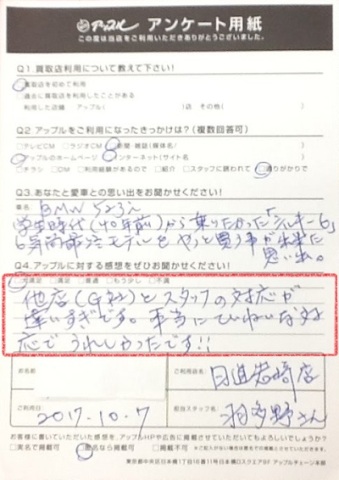 アップル アンケート用紙
この度は当店をご利用いただきありがとうございました。
Q1 買取店利用について教えて下さい!
買取店を初めて利用
過去に買取店を利用したことがある
利用した店舗 アップル( )店 その他( )
Q2 アップルをご利用になったきっかけは?(複数回答可)
□テレビCM □ラジオCM □新聞・雑誌(媒体名/ )
アップルのホームページ インターネット(サイト名 )
□チラシ □DM □利用経験があるので □紹介 □スタッフに誘われて □通りがかりで
Q3.あなたと愛車との思い出をお聞かせください!
車名 BMW 523i
学生時代(40年前)から乗りたかった「シルキー6」
6年前 モデルをやっと買う事が出来た
思い出。
Q4.アップルに対する感想をぜひお聞かせください!
大満足 □満足 □普通 □もう少し □不満
他店(G社)とスタッフの対応が
違いすぎです。本当にていねいな対
応で うれしかったです!!
お名前
ご利用店名 日進岩崎店
ご利用日 2017.10.7
担当スタッフ名 羽多野さん
お客様に書いていただいた感想を、アップルHPや広告に掲載させていただいてもよろしいでしょうか?
□実名で掲載可 匿名なら掲載可 □掲載不可
東京都中央区日本橋1丁目16番11号日本橋DスクエアBF アップルチェーン本部